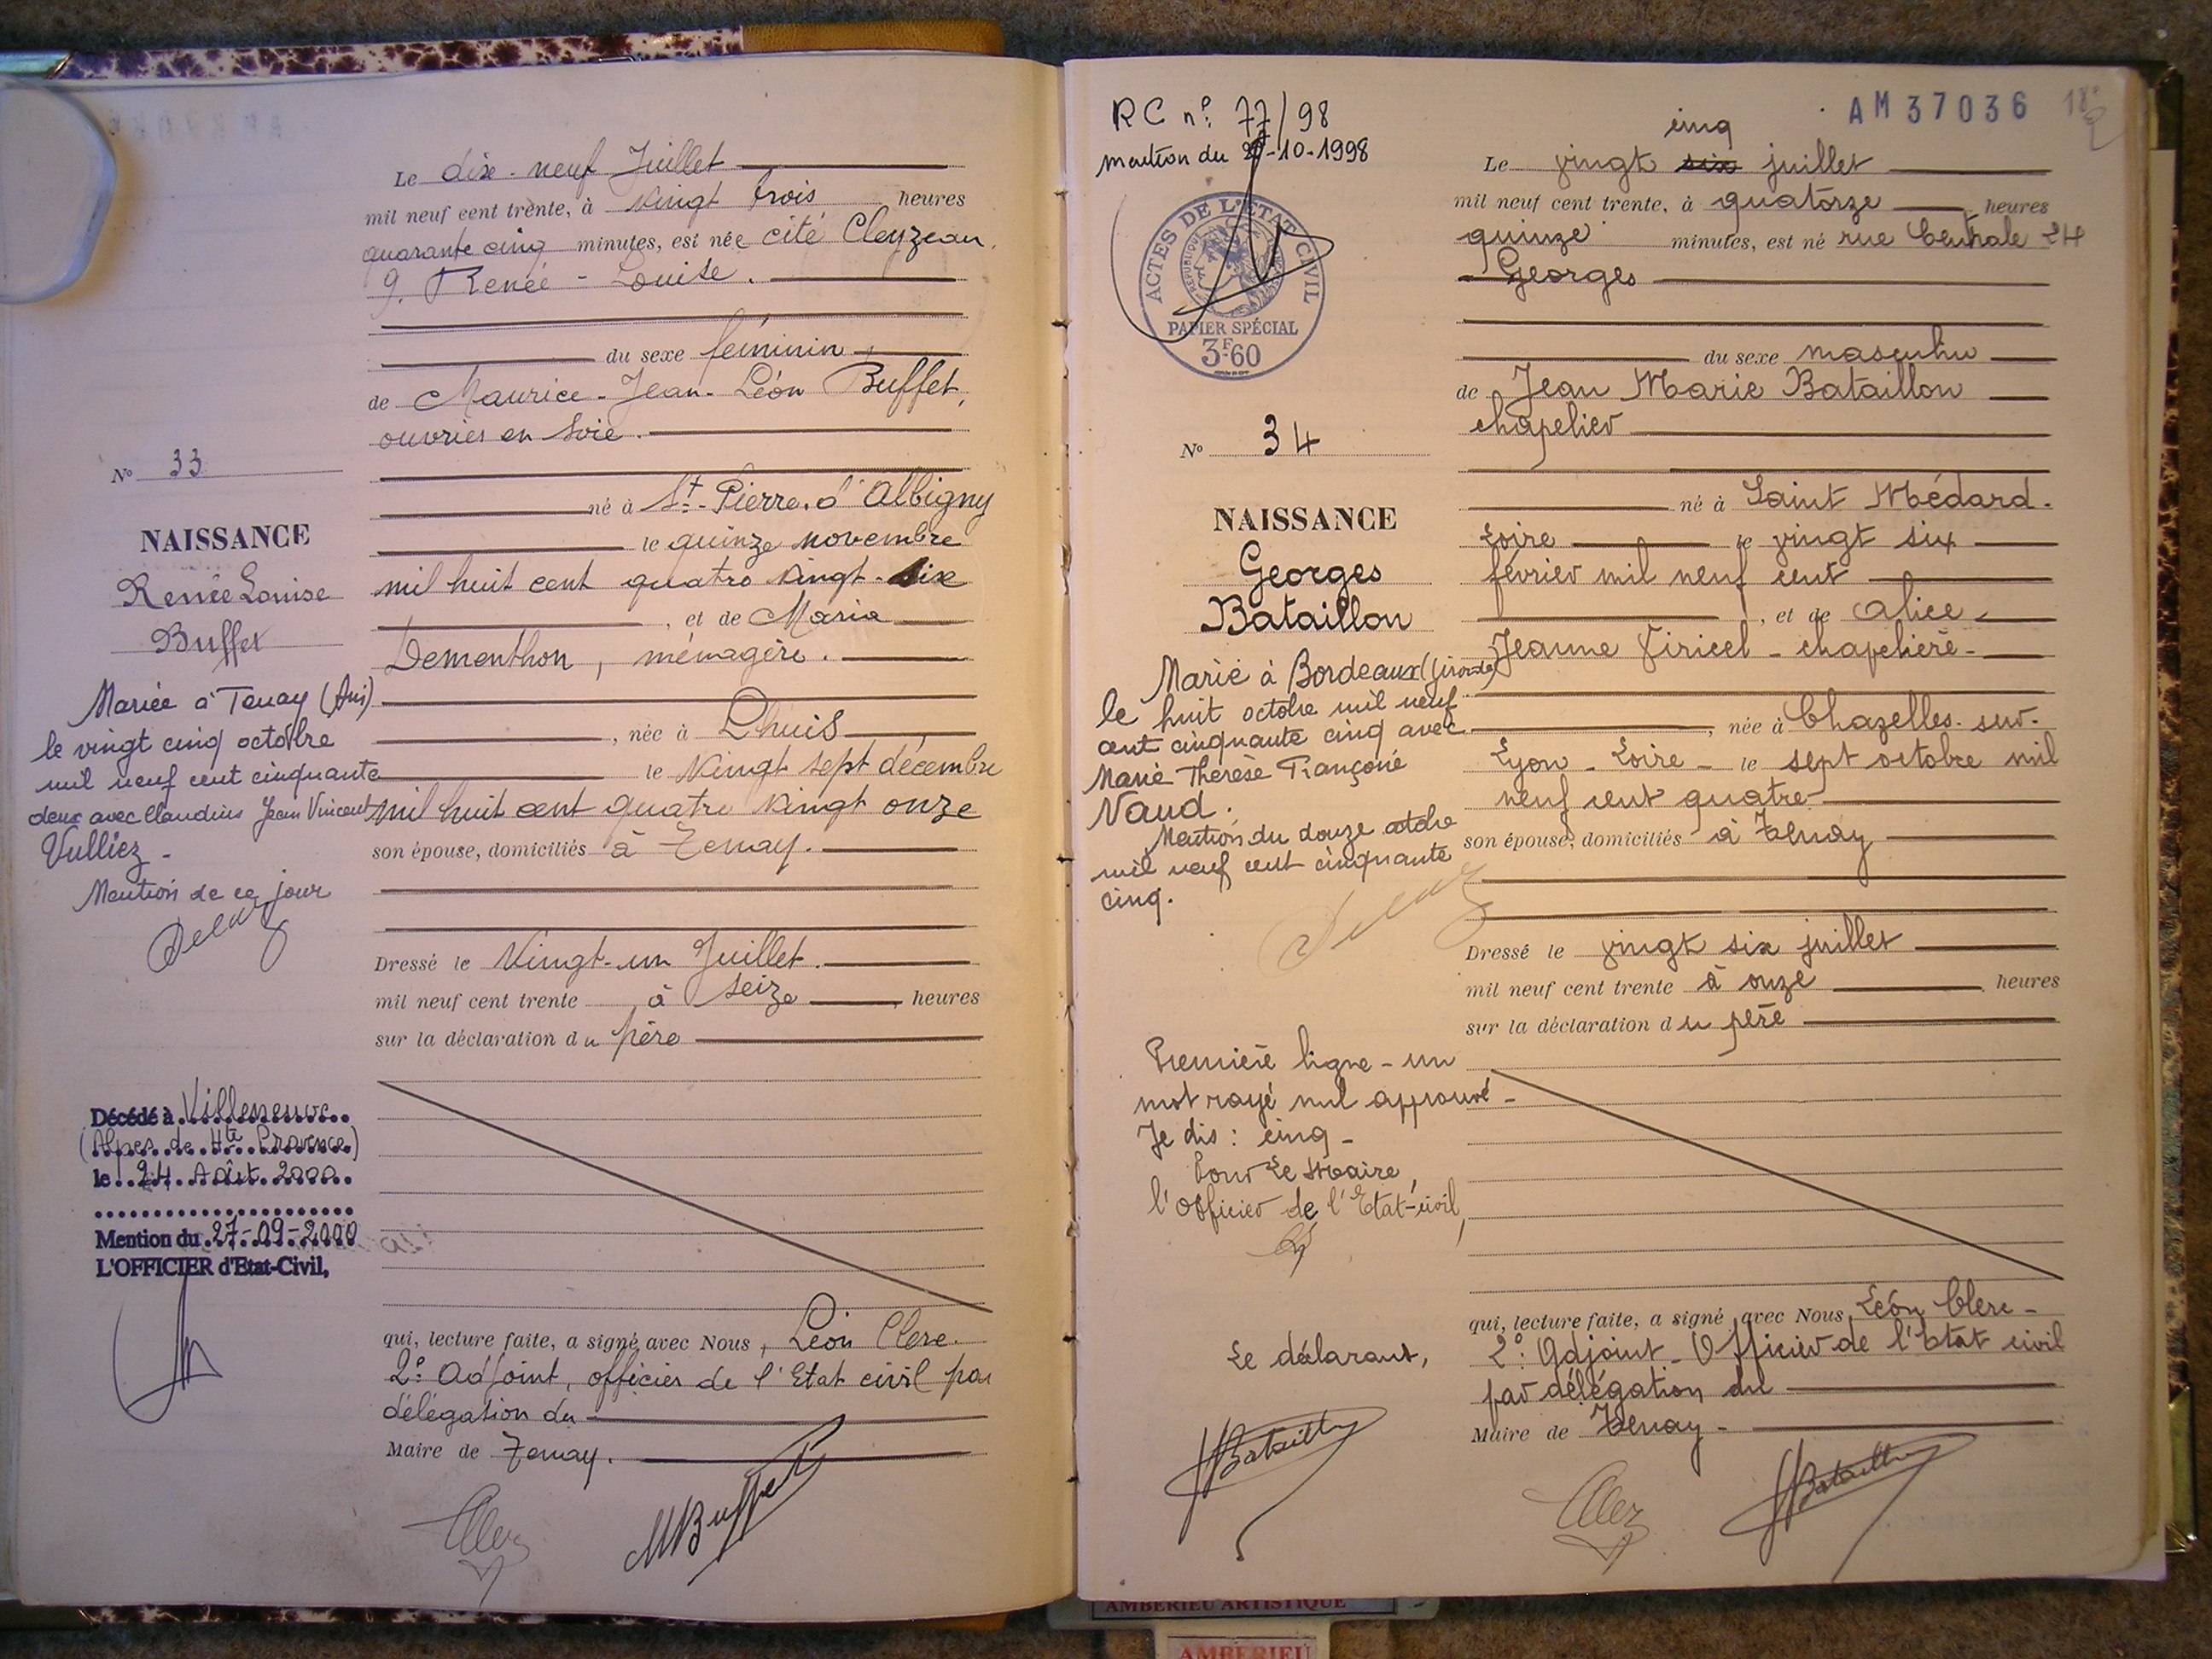 Le dix-neuf Juillet
mil neuf cent trente, à vingt trois heures
quarante cinq minutes, est née cité Cleyzeau,
9. Renée-Louise.
du sexe féminin,
de Maurice-Jean-Léon Buffet,
ouvrier en soie.
né à St-Pierre d'Albigny
le quinze novembre
mil huit cent quatre vingt-six
, et de Maria
Dementhon, ménagère.
, née à Lhuis
le vingt sept décembre
mil huit cent quatre vingt onze
son épouse, domiciliés à Tenay.
Dressé le Vingt-un Juillet.
mil neuf cent trente à seize heures
sur la déclaration du père
qui, lecture faite, a signé avec Nous, Léon Clerc.
2e Adjoint, officier de l'Etat civil par
délégation du
Maire de Tenay.
Clerc
MBuffet
No 33
NAISSANCE
Renée Louise
Buffet
Mariée à Tenay (Ain)
le vingt cinq octobre
mil neuf cent cinquante
deux avec Claudius Jean Vincent
Vulliez -
Mention de ce jour
Décédé à Villeneuve
(Alpes de Hte Provence)
le 24 Août 2000
Mention du 27-09-2000
L'OFFICIER d'Etat-Civil,
RC n° 77/98
mention du -10-1998
ACTES DE L'ETAT CIVIL
REPUBLIQUE
PAPIER SPÉCIAL
3F60
No 34
NAISSANCE
Georges
Bataillon
Marié à Bordeaux (Gironde)
le huit octobre mil neuf
cent cinquante cinq avec
Marie Thérèse Françoise
Naud.
Mention du douze octobre
mil neuf cent cinquante
cinq.
Première ligne - un
mot rayé nul approuvé -
Je dis : cinq -
Pour Le Maire,
l'Officier de l'Etat-civil,
Le déclarant,
JBataillon
AM37036
cinq
Le vingt six juillet
mil neuf cent trente, à quatorze heures
quinze minutes, est né rue Centrale 24
- Georges
du sexe masculin
de Jean Marie Bataillon
chapelier
né à Saint Médard-
Loire le vingt six
février mil neuf cent
, et de Alice-
Jeanne Viricel - chapelière -
, née à Chazelles-sur-
Lyon - Loire - le sept octobre mil
neuf cent quatre
son épouse, domiciliés à Tenay
Dressé le vingt six juillet
mil neuf cent trente à onze heures
sur la déclaration du père
qui, lecture faite, a signé avec Nous, Léon Clerc -
2e Adjoint - Officier de l'Etat civil
par délégation du
Maire de Tenay -
Clerc
JBataillon
AMBERIEU ARTISTIQUE
AMBERIEU